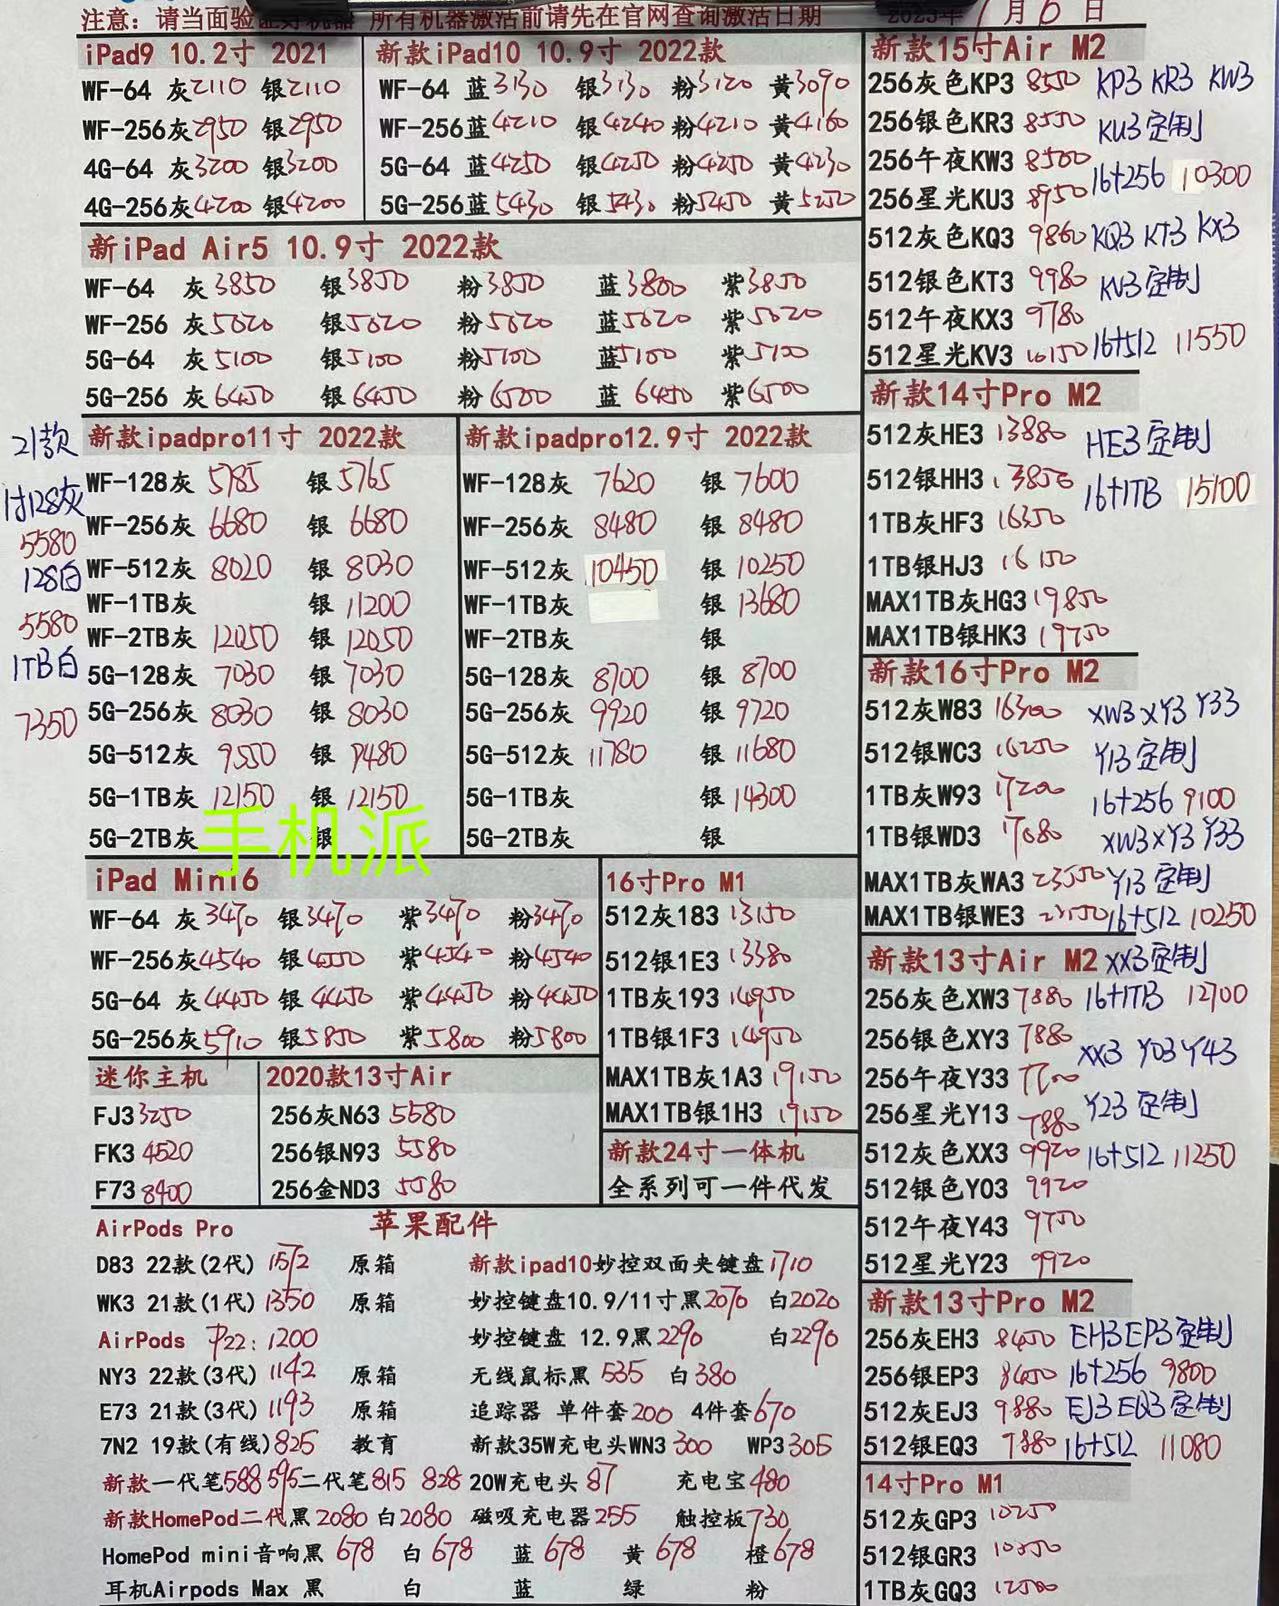 注意：请当面验证好机器 所有机器激活前请先在官网查询激活日期 2023年7月6日
iPad9 10.2寸 2021
WF-64 灰2110 银2110
WF-256灰2950 银2950
4G-64 灰3200 银3200
4G-256灰4200 银4200
新款iPad10 10.9寸 2022款
WF-64 蓝3130 银3130 粉3120 黄3090
WF-256蓝4210 银4240 粉4210 黄4160
5G-64 蓝4250 银4250 粉4250 黄4230
5G-256蓝5430 银5430 粉5450 黄5250
新iPad Air5 10.9寸 2022款
WF-64 灰3850 银3850 粉3850 蓝3800 紫3850
WF-256 灰5020 银5020 粉5020 蓝5020 紫5020
5G-64 灰5100 银5100 粉5100 蓝5100 紫5100
5G-256 灰6450 银6450 粉6500 蓝 6450 紫6500
21款
11寸128灰
5580
128白
5580
1TB白
7350
新款ipadpro11寸 2022款
WF-128灰 5785 银 5765
WF-256灰 6680 银 6680
WF-512灰 8020 银 8030
WF-1TB灰 银 11200
WF-2TB灰 12050 银 12050
5G-128灰 7030 银 7030
5G-256灰 8030 银 8030
5G-512灰 9550 银 9480
5G-1TB灰 12150 银 12150
5G-2TB灰 银
手机派
新款ipadpro12.9寸 2022款
WF-128灰 7620 银 7600
WF-256灰 8480 银 8480
WF-512灰 10450 银 10250
WF-1TB灰 银 13680
WF-2TB灰 银
5G-128灰 8700 银 8700
5G-256灰 9920 银 9720
5G-512灰 11780 银 11680
5G-1TB灰 银 14300
5G-2TB灰 银
iPad Mini6
WF-64 灰3470 银3470 紫3470 粉3470
WF-256灰4540 银4550 紫4540 粉4540
5G-64 灰4450 银 4450 紫4450 粉4450
5G-256灰5910 银5850 紫5800 粉5800
16寸Pro M1
512灰183 13150
512银1E3 13380
1TB灰193 14950
1TB银1F3 14950
MAX1TB灰1A3 19150
MAX1TB银1H3 19150
迷你主机
FJ3 3250
FK3 4520
F73 8400
2020款13寸Air
256灰N63 5580
256银N93 5580
256金ND3 5580
新款24寸一体机
全系列可一件代发
AirPods Pro 苹果配件
D83 22款(2代) 1572 原箱 新款ipad10妙控双面夹键盘1710
WK3 21款(1代) 1350 原箱 妙控键盘10.9/11寸黑2070 白2020
AirPods P22: 1200 妙控键盘 12.9黑2290 白2290
NY3 22款(3代) 1142 原箱 无线鼠标黑 535 白380
E73 21款(3代) 1193 原箱 追踪器 单件套200 4件套670
7N2 19款(有线)825 教育 新款35W充电头WN3 300 WP3 305
新款一代笔588 595二代笔815 828 20W充电头 87 充电宝480
新款HomePod二代黑2080 白2080 磁吸充电器255 触控板730
HomePod mini音响黑 678 白 678 蓝 678 黄 678 橙678
耳机Airpods Max 黑 白 蓝 绿 粉
新款15寸Air M2
256灰色KP3 8550 KP3 KR3 KW3
256银色KR3 8550 KU3定制
256午夜KW3 8500 16+256 10300
256星光KU3 8950
512灰色KQ3 9860 KQ3 KT3 KX3
512银色KT3 9980 KV3定制
512午夜KX3 9780
512星光KV3 10150 16+512 11550
新款14寸Pro M2
512灰HE3 13880 HE3定制
512银HH3 13850 16+1TB 15100
1TB灰HF3 16350
1TB银HJ3 16150
MAX1TB灰HG3 19850
MAX1TB银HK3 19750
新款16寸Pro M2
512灰W83 16300 XW3 XY3 Y33
512银WC3 16250 Y13定制
1TB灰W93 17200 16+256 9100
1TB银WD3 17080 XW3 XY3 Y33
MAX1TB灰WA3 23550 Y13 定制
MAX1TB银WE3 16+512 10250
新款13寸Air M2 XX3定制
256灰色XW3 7880 16+1TB 12700
256银色XY3 7880 XX3 Y03 Y43
256午夜Y33 7700
256星光Y13 7880 Y23 定制
512灰色XX3 9920 16+512 11250
512银色Y03 9920
512午夜Y43 9750
512星光Y23 9920
新款13寸Pro M2
256灰EH3 8450 EH3 EP3定制
256银EP3 8450 16+256 9800
512灰EJ3 9880 EJ3 EQ3定制
512银EQ3 9880 16+512 11080
14寸Pro M1
512灰GP3 10250
512银GR3 10350
1TB灰GQ3 12500